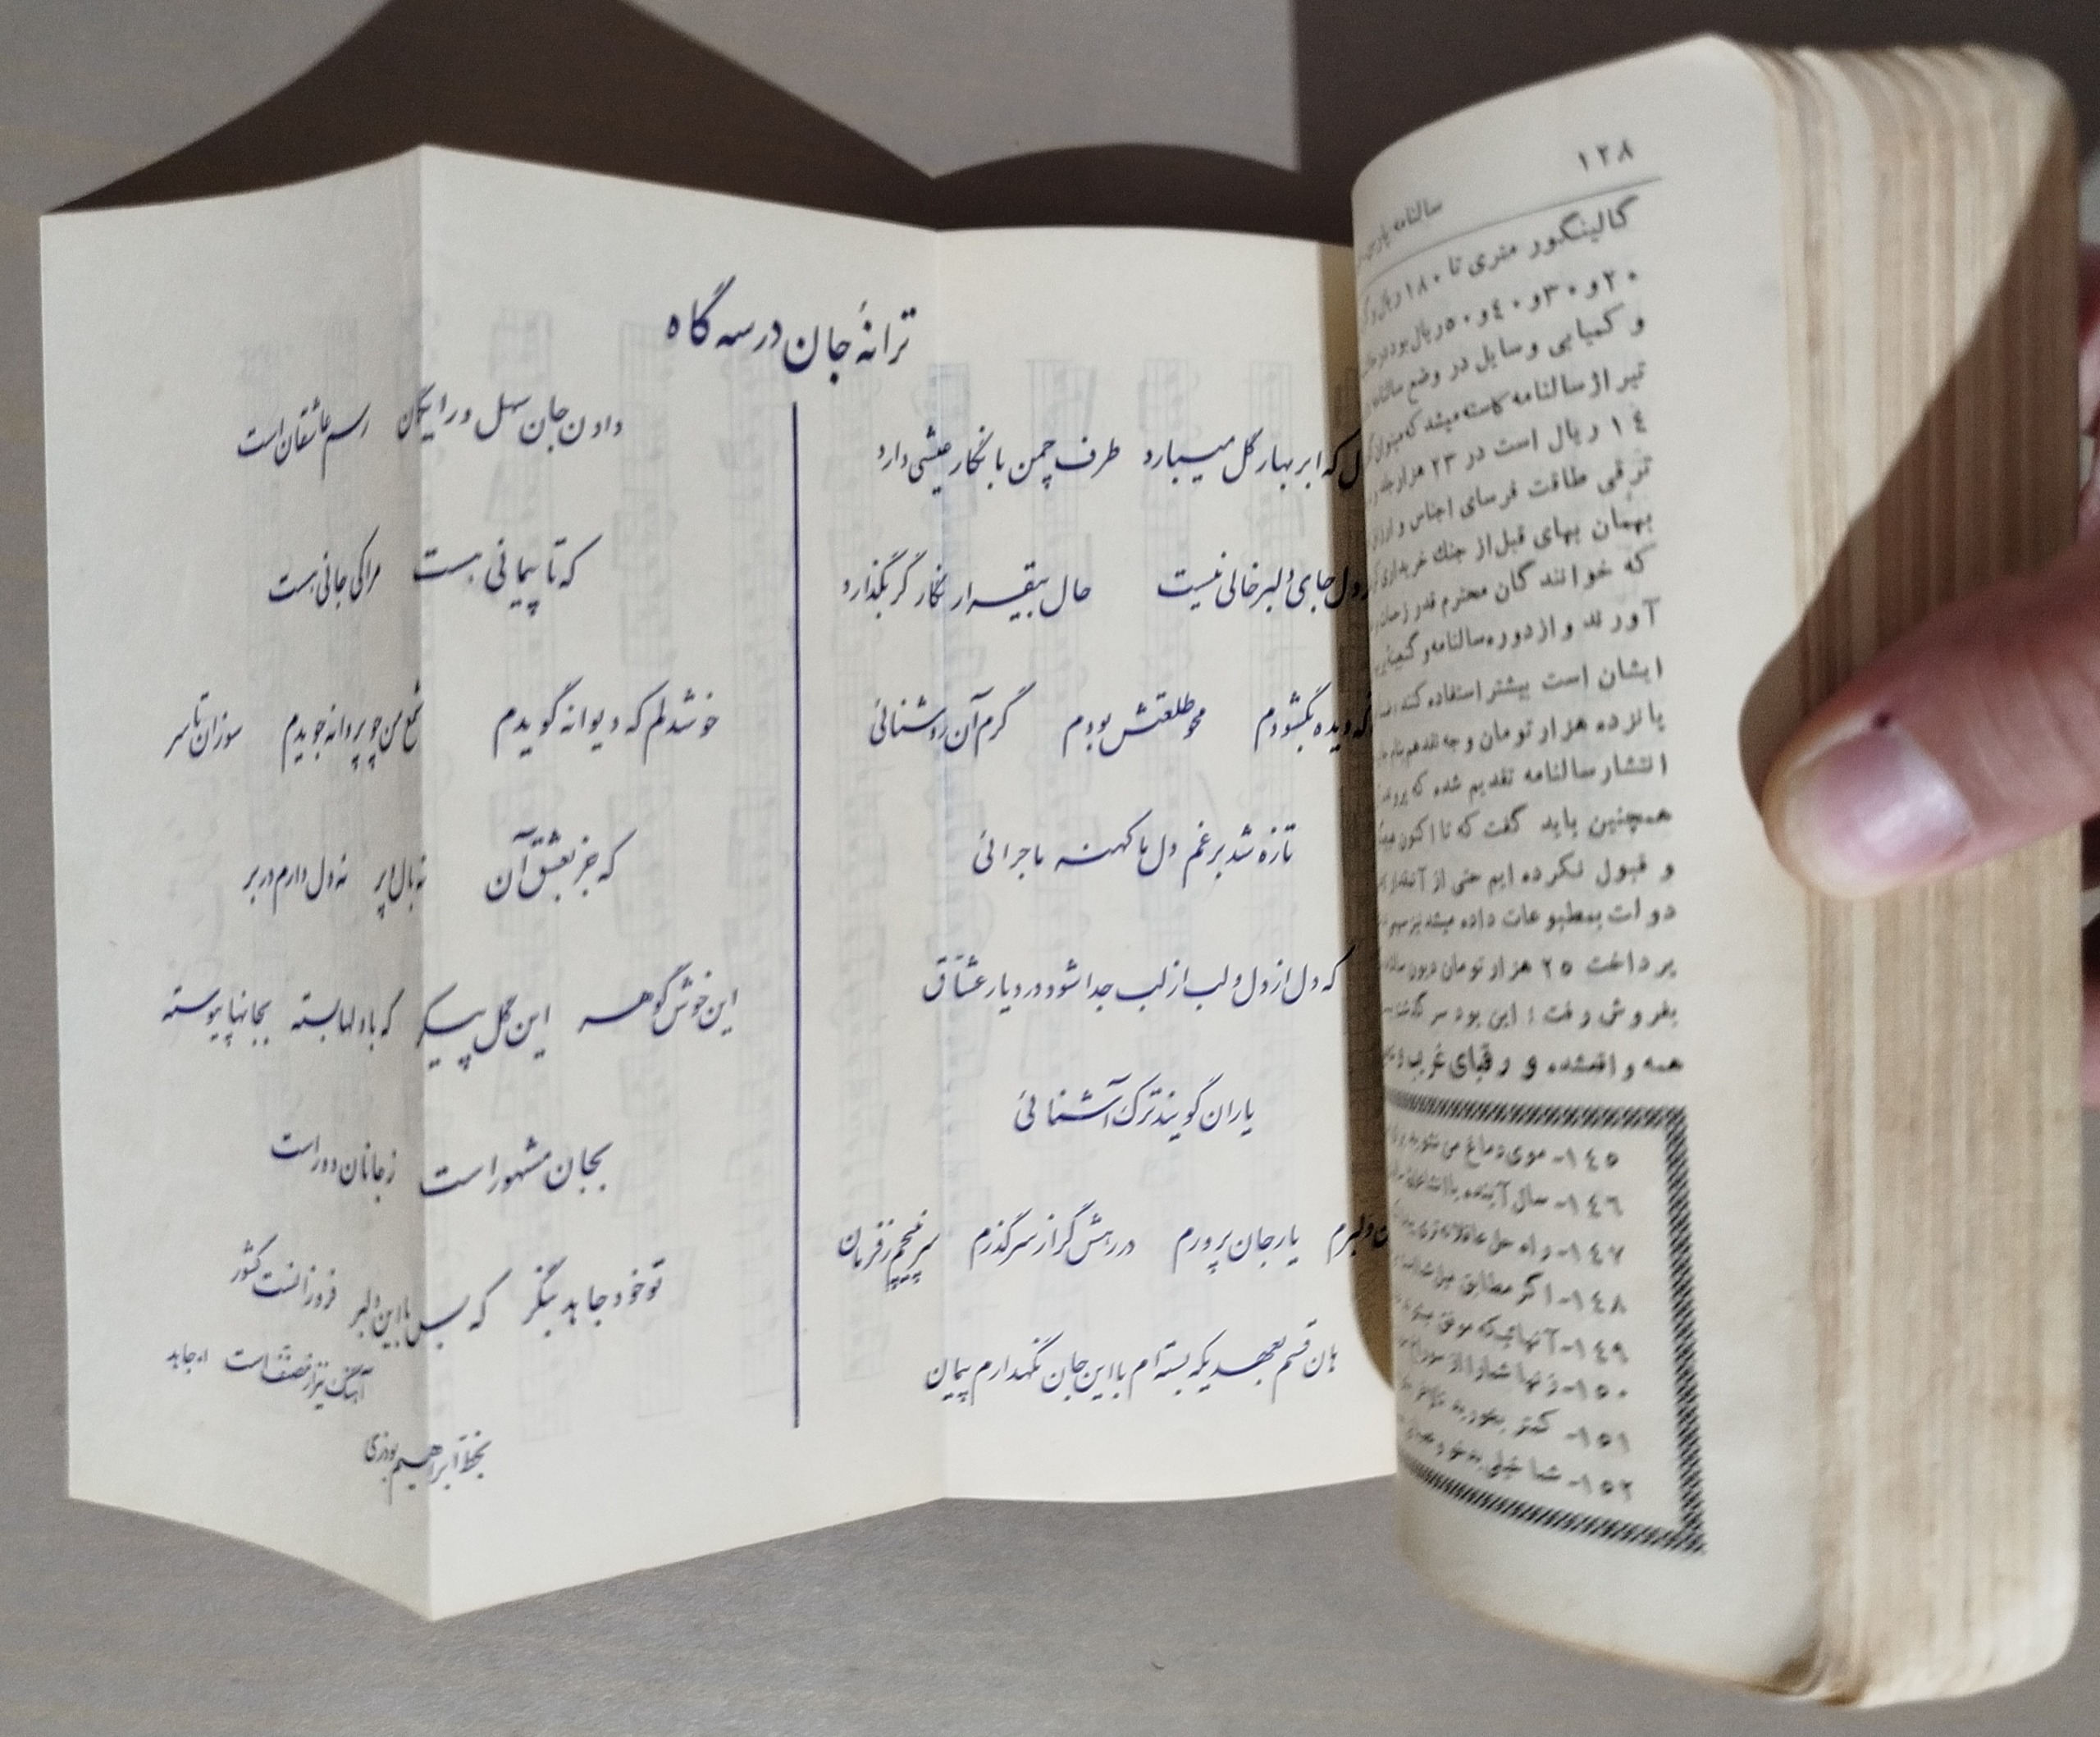 ۱۲۸
سالنامه پارس
کالینگور متری تا ۱۸۰ ریال و
۲۰ و ۳۰ و ۴۰ و ۵۰ ریال بود در
و کمیابی وسایل در وضع سالنامه
تیراژ سالنامه کاسته میشد که میتوان
۱۴ ریال است در ۲۳ هزار جلد
ترقی طاقت فرسای اجناس و
بهمان بهای قبل از جنك خریداری
که خوانندگان محترم قدر زحمات
آورند و از دوره سالنامه و گنجینه
ایشان است بیشتر استفاده کنند
پانزده هزار تومان وجه نقد هم بنام
انتشار سالنامه تقدیم شده که
همچنین باید گفت که تا اکنون
و قبول نکرده ایم حتی از
دولت بمطبوعات داده میشد نیز
پرداخت ۲۵ هزار تومان دیون
بفروش رفت ؛ این بود سر گذشت
همه واقفشده و رقبای غرب و
۱۴۵- موی دماغ می شوید
۱۴۶- سال آینده با
۱۴۷- راه حل عاقلانه تری
۱۴۸- اگر مطابق میل شما
۱۴۹- آنهائیکه موفق میشوند
۱۵۰- زنها شما را از
۱۵۱- کمتر بخورید
۱۵۲- شما خیلی بدخو و
ترانهٔ جان در سه گاه
که ابر بهار گل میبارد طرف چمن با نگار عیشی دارد
دل جای دلبر خالی نیست حال بیقرار نگار گر بگذارد
که دیده بگشودم محو طلعتش بودم گرم آن روشنائی
تازه شد بر غم دل ما کهنه ماجرائی
که دل از دل و لب از لب جدا شود در دیار عشاق
یاران گویند ترک آشنائی
دلبرم یار جان پرورم در رهش گر از سر گذرم سر نپیچم ز فرمان
هان قسم بعهدیکه بسته‌ام با این جان نگهدارم پیمان
دادن جان سهل و رایگان رسم عاشقان است
که تا پیمانی هست مرا کی جانی هست
خوشدلم که دیوانه گویدم شمع من چو پروانه جویدم سوزان تا سر
که جز بعشق آن نه بال و پر نه دل دارم در بر
این خوش گوهر این گل پیکر که با دلها بسته بجانها پیوسته
بجان مشهور است ز جانان دور است
تو خود جاهد بنگر که بس با این دلبر فروزانست کشور
آهنگ نیز از مصنف است ا.جاهد
بخط ابراهیم بوذری